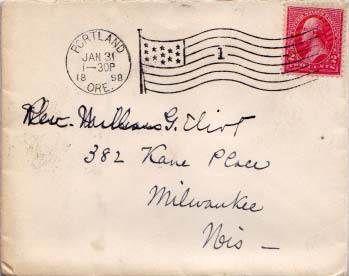 PORTLAND
JAN 31
1-30P
1898
ORE.
1
TWO CENTS
Rev. William G. Eliot
382 Kane Place
Milwaukee
Wis —